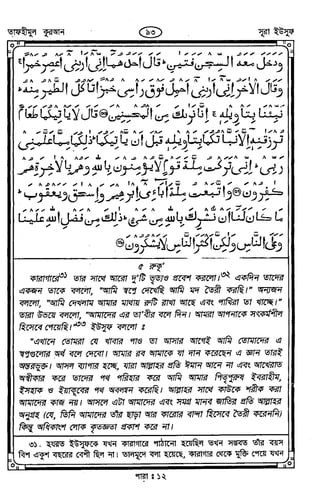 তাফহীমুল কুরআন
৯৩
সূরা ইউসুফ
وَدَخَلَ مَعَهُ السِّجْنَ فَتَيٰنِ ۖ قَالَ أَحَدُهُمَا إِنِّي أَرٰىنِي أَعْصِرُ خَمْرًا ۚ
وَقَالَ الْآخَرُ إِنِّي أَرٰىنِي أَحْمِلُ فَوْقَ رَأْسِي خُبْزًا تَأْكُلُ الطَّيْرُ مِنْهُ ۖ
نَبِّئْنَا بِتَأْوِيلِهِ ۚ إِنَّا نَرٰىكَ مِنَ الْمُحْسِنِينَ ۝ قَالَ لَا يَأْتِيكُمَا طَعَامٌ
تُرْزَقٰنِهِ إِلَّا نَبَّأْتُكُمَا بِتَأْوِيلِهِ قَبْلَ أَنْ يَأْتِيَكُمَا ۚ ذٰلِكُمَا مِمَّا عَلَّمَنِي
رَبِّي ۚ إِنِّي تَرَكْتُ مِلَّةَ قَوْمٍ لَا يُؤْمِنُونَ بِاللّٰهِ وَهُمْ بِالْآخِرَةِ هُمْ
كٰفِرُونَ ۝ وَاتَّبَعْتُ مِلَّةَ آبَائِي إِبْرٰهِيمَ وَإِسْحٰقَ وَيَعْقُوبَ ۚ
مَا كَانَ لَنَا أَنْ نُشْرِكَ بِاللّٰهِ مِنْ شَيْءٍ ۚ ذٰلِكَ مِنْ فَضْلِ اللّٰهِ عَلَيْنَا
وَعَلَى النَّاسِ وَلٰكِنَّ أَكْثَرَ النَّاسِ لَا يَشْكُرُونَ ۝
৫ রুকূ'
কারাগারে৩১ তার সাথে আরো দু'টি ভৃত্যও প্রবেশ করলো।৩২ একদিন তাদের
একজন তাকে বললো, "আমি স্বপ্নে দেখেছি আমি মদ তৈরী করছি।" অন্যজন
বললো, "আমি দেখলাম আমার মাথায় রুটি রাখা আছে এবং পাখিরা তা খাচ্ছে।"
তারা উভয়ে বললো, "আমাদের এর তা'বীর বলে দিন। আমরা আপনাকে সৎকর্মশীল
হিসেবে পেয়েছি।"৩৩ ইউসুফ বললো ঃ
"এখানে তোমরা যে খাবার পাও তা আসার আগেই আমি তোমাদের এ
স্বপ্নগুলোর অর্থ বলে দেবো। আমার রব আমাকে যা দান করেছেন এ জ্ঞান তারই
অন্তরভুক্ত। আসল ব্যাপার হচ্ছে, যারা আল্লাহর প্রতি ঈমান আনে না এবং আখেরাত
অস্বীকার করে তাদের পথ পরিহার করে আমি আমার পিতৃপুরুষ ইবরাহীম,
ইসহাক ও ইয়াকূবের পথ অবলম্বন করেছি। আল্লাহর সাথে কাউকে শরীক করা
আমাদের কাজ নয়। আসলে এটা আমাদের এবং সমগ্র মানব জাতির প্রতি আল্লাহর
অনুগ্রহ (যে, তিনি আমাদের তাঁর ছাড়া আর কারোর বান্দা হিসেবে তৈরী করেননি)
কিন্তু অধিকাংশ লোক কৃতজ্ঞতা প্রকাশ করে না।
৩১. হযরত ইউসুফকে যখন কারাগারে পাঠানো হয়েছিল তখন সম্ভবত তাঁর বয়স
বিশ একুশ বছরের বেশী ছিল না। তালমূদে বলা হয়েছে, কারাগার থেকে মুক্তি পেয়ে যখন
পারা ঃ ১২